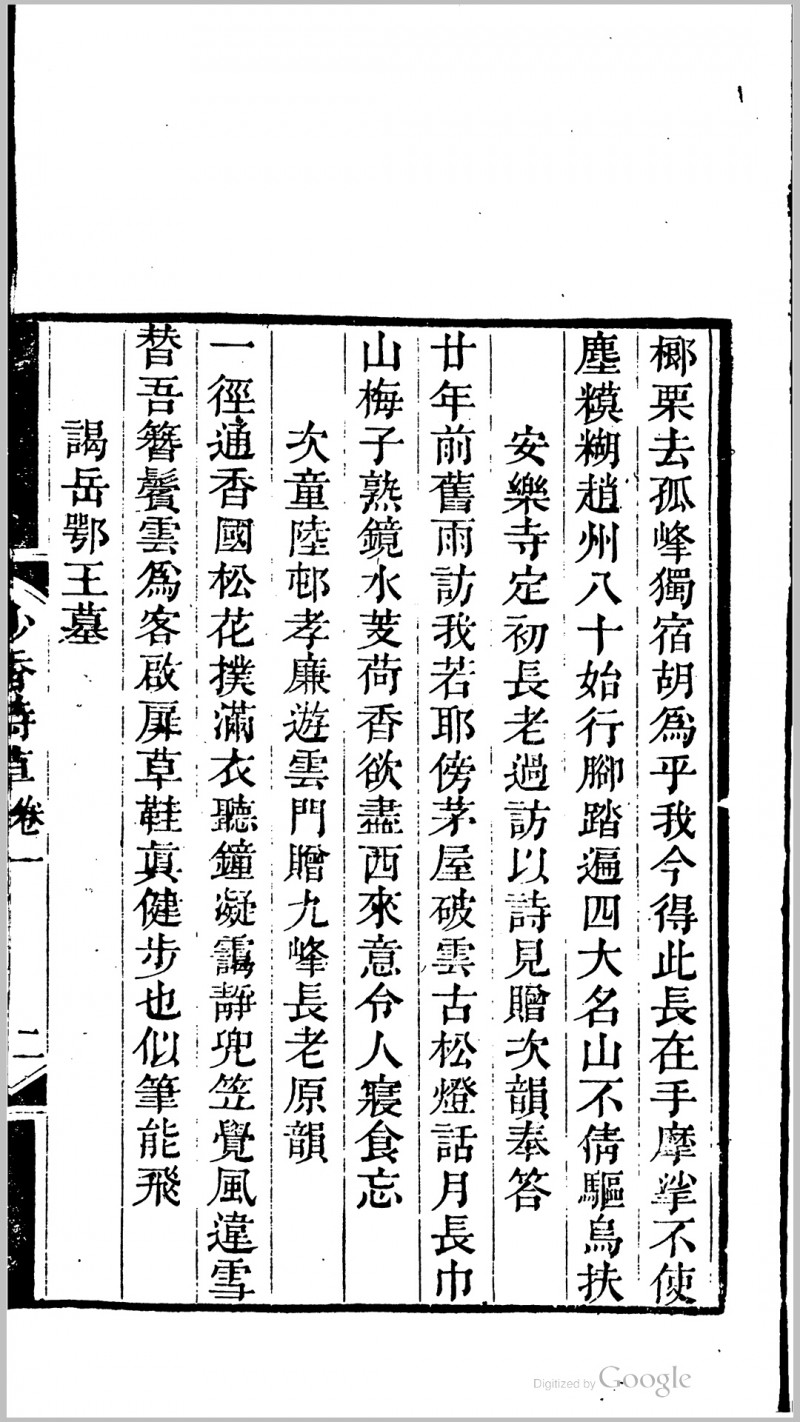 楖栗去孤峰獨宿胡爲乎我今得此長在手摩挲不使
塵糢糊趙州八十始行腳踏遍四大名山不倩驅烏扶
安樂寺定初長老過訪以詩見贈次韻奉答
廿年前舊雨訪我若耶傍茅屋破雲古松燈話月長巾
山梅子熟鏡水芰荷香欲盡西來意令人寢食忘
次童陸邨孝廉遊雲門贈九峰長老原韻
一徑通香國松花撲滿衣聽鐘凝靄靜兜笠覺風違雪
替吾簪鬢雲爲客啟扉草鞋眞健步也似筆能飛
謁岳鄂王墓
少香詩草 卷一
二
Digitized by Google